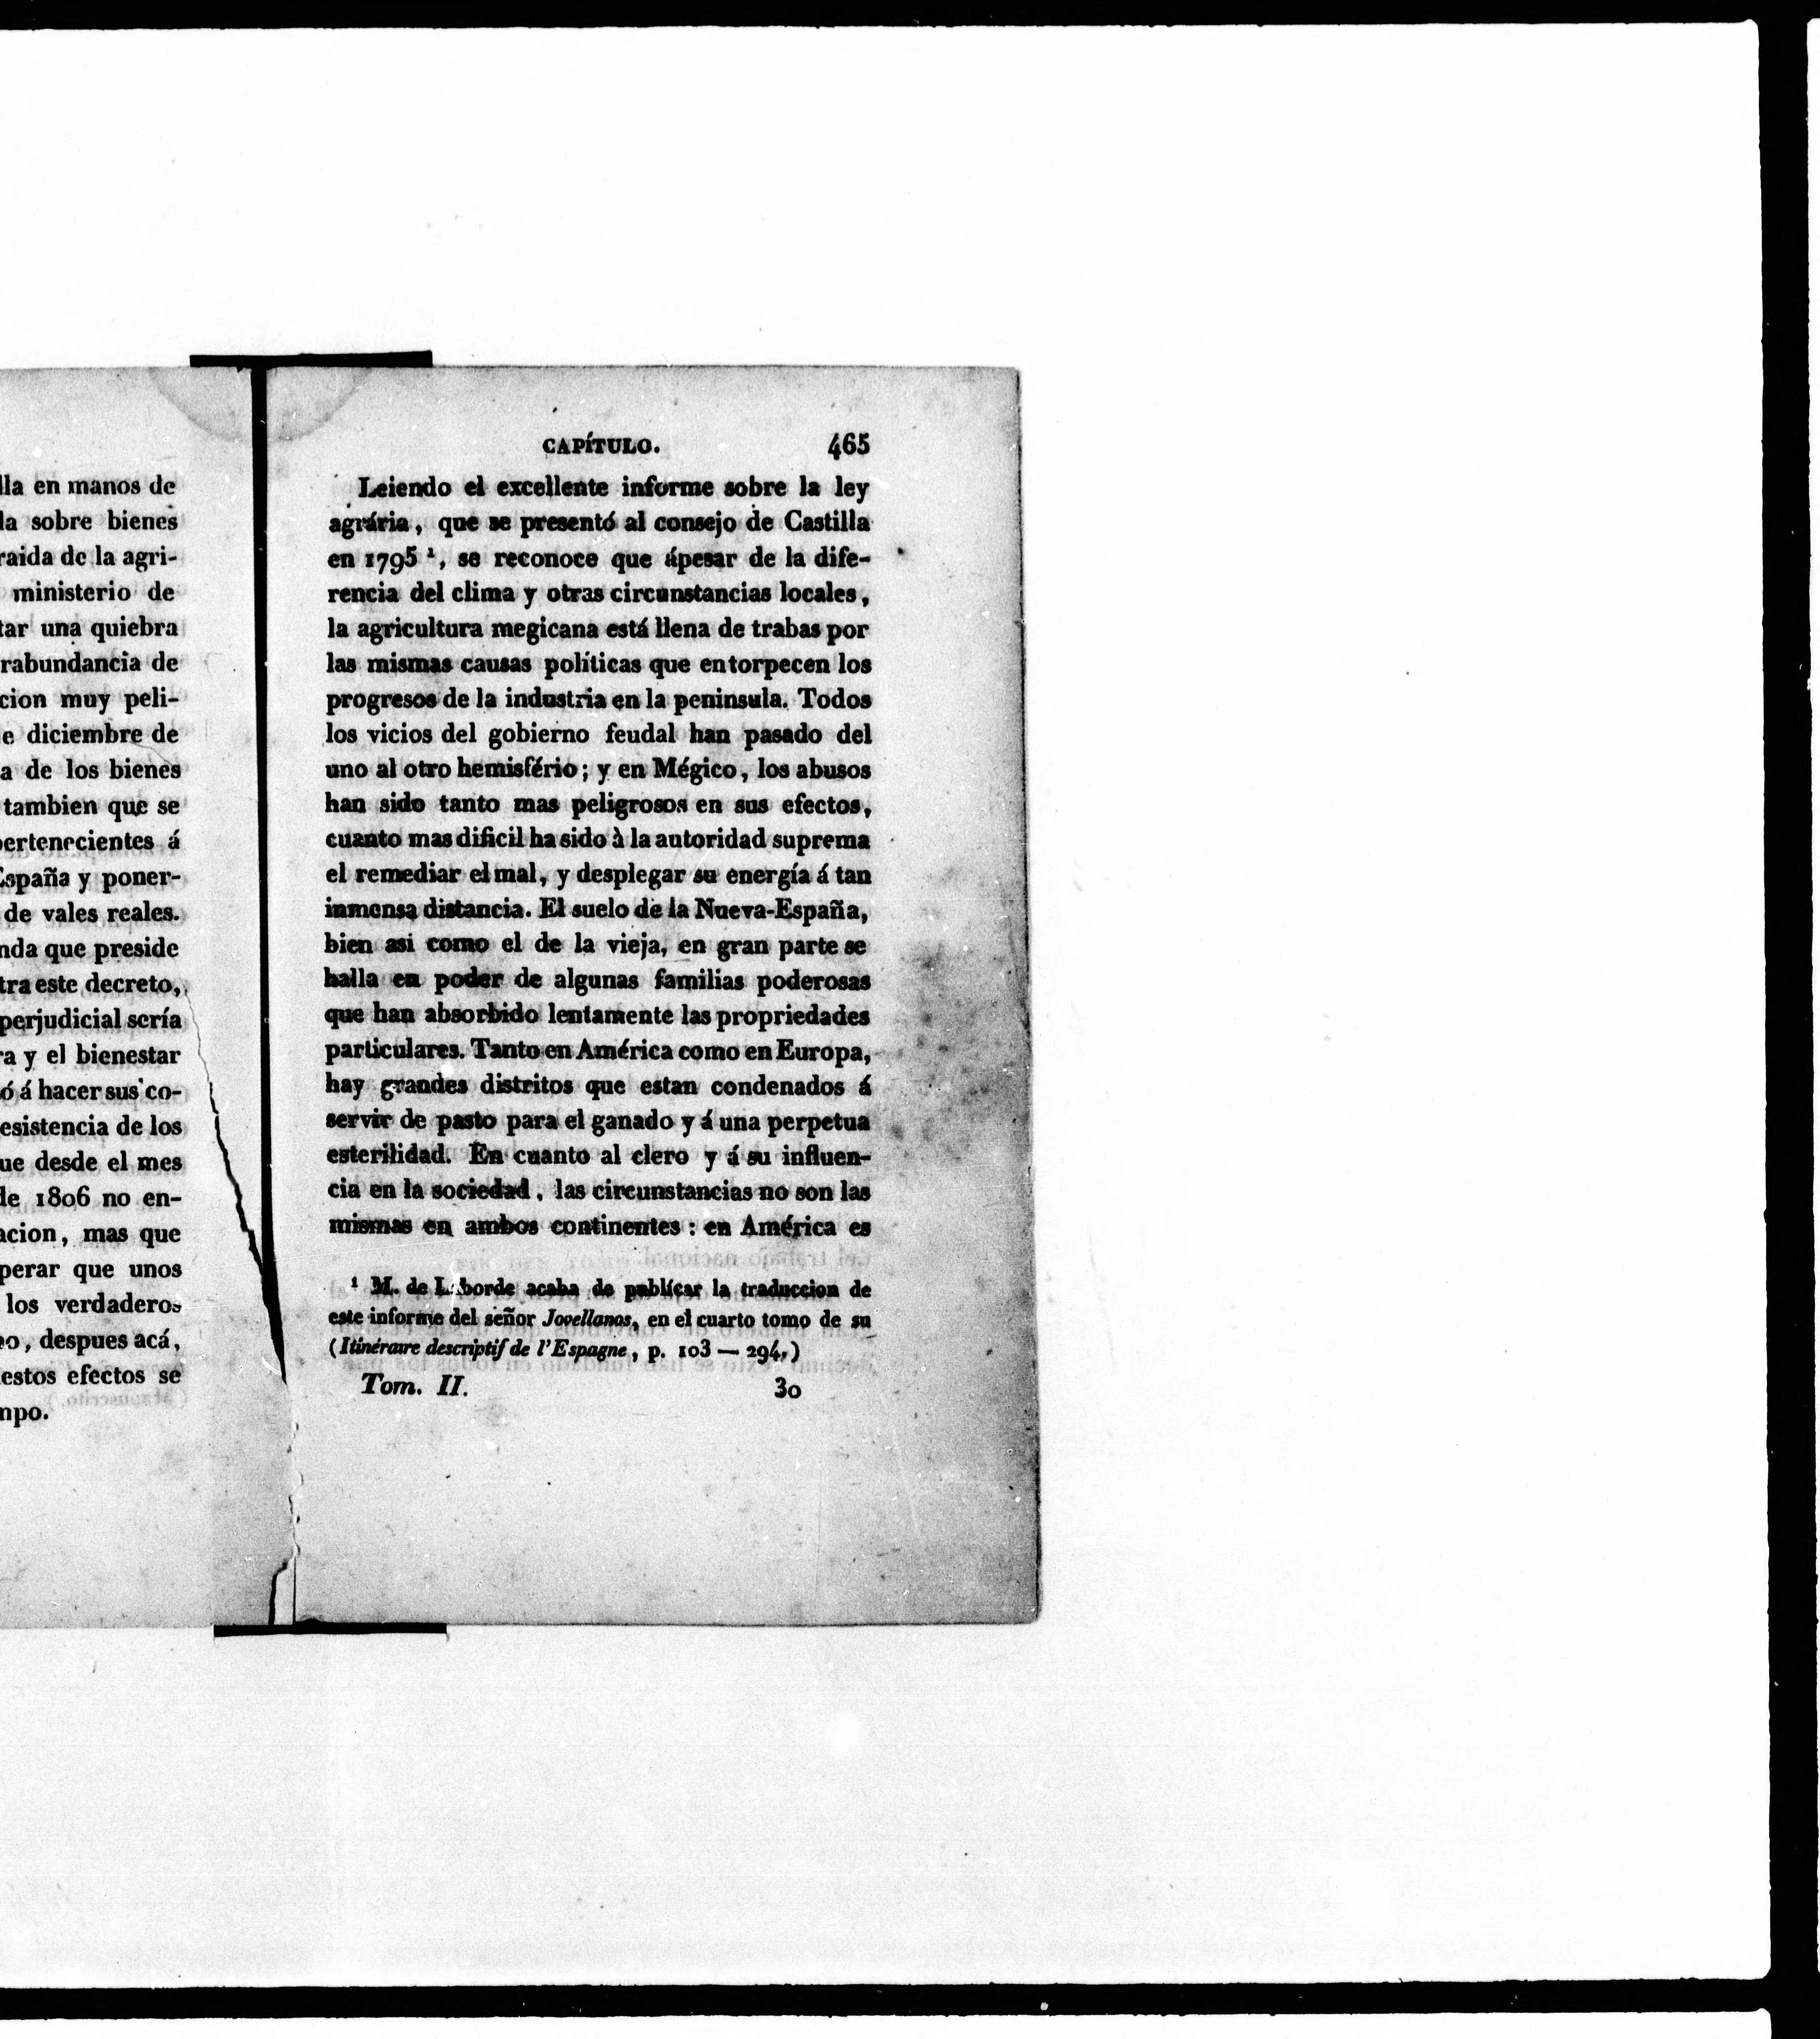 lla en manos de
la sobre bienes
raida de la agri-
ministerio de
tar una quiebra
rabundancia de
cion muy peli-
e diciembre de
a de los bienes
tambien que se
pertenecientes á
España y poner-
de vales reales.
nda que preside
tra este decreto,
perjudicial sería
ra y el bienestar
ó á hacer sus co-
esistencia de los
ue desde el mes
de 1806 no en-
acion, mas que
perar que unos
los verdaderos
despues acá,
estos efectos se
mpo.
CAPÍTULO. 465
Leiendo el excellente informe sobre la ley
agrária, que se presentó al consejo de Castilla
en 1795 ¹, se reconoce que ápesar de la dife-
rencia del clima y otras circunstancias locales,
la agricultura megicana está llena de trabas por
las mismas causas políticas que entorpecen los
progresos de la industria en la peninsula. Todos
los vicios del gobierno feudal han pasado del
uno al otro hemisfério; y en Mégico, los abusos
han sido tanto mas peligrosos en sus efectos,
cuanto mas dificil ha sido à la autoridad suprema
el remediar el mal, y desplegar su energía á tan
inmensa distancia. El suelo de la Nueva-España,
bien asi como el de la vieja, en gran parte se
halla en poder de algunas familias poderosas
que han absorbido lentamente las propriedades
particulares. Tanto en América como en Europa,
hay grandes distritos que estan condenados á
servir de pasto para el ganado y á una perpetua
esterilidad. En cuanto al clero y á su influen-
cia en la sociedad, las circunstancias no son las
mismas en ambos continentes : en América es
¹ M. de Laborde acaba de publícar la traduccion de
este informe del señor Jovellanos, en el cuarto tomo de su
(Itinéraire descriptif de l'Espagne, p. 103 — 294.)
Tom. II. 30